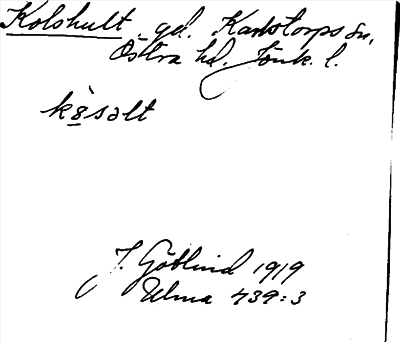 Kolshult gd. Karlstorps sn,
Östra hd. Jönk. l.
kåsəlt
J. Götlind 1919
Ulma 439:3